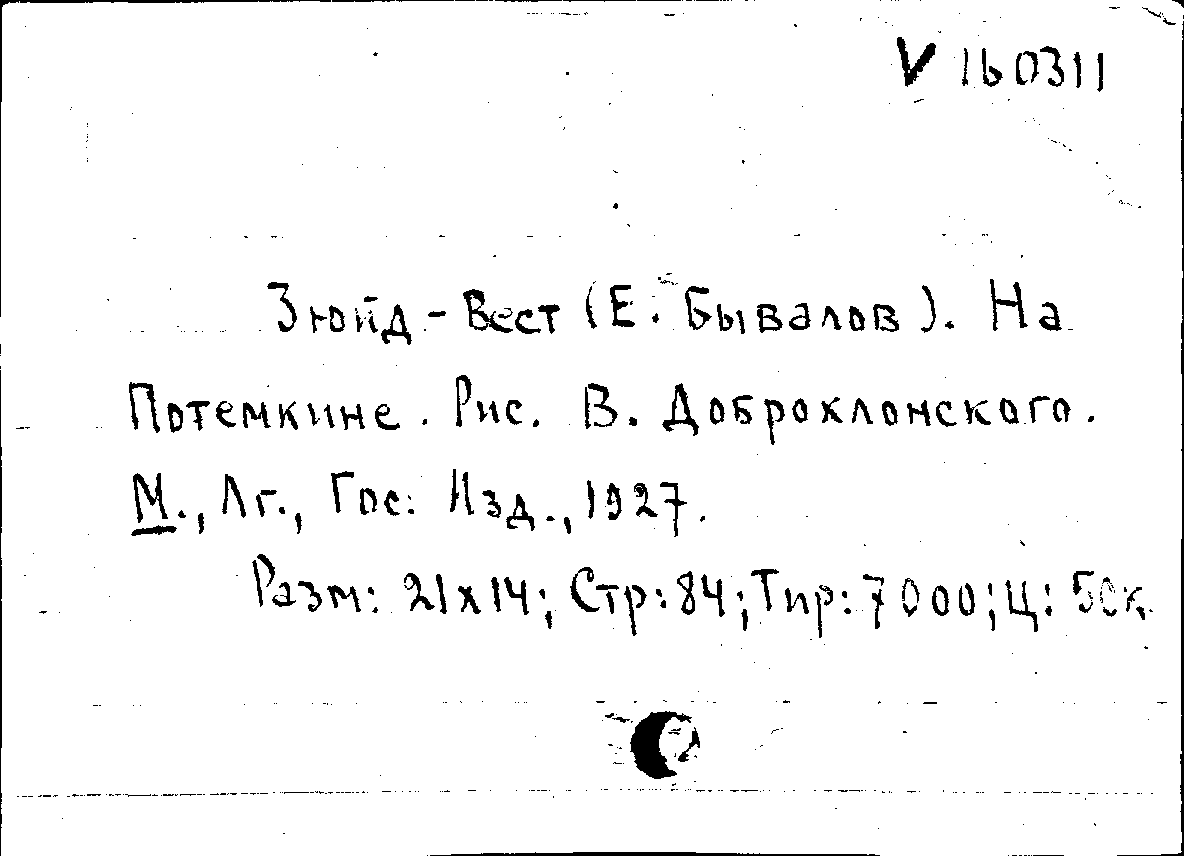 V 160311
Зюйд-Вест (Е. Бывалов). На
Потемкине. Рис. В. Доброклонского.
М., Лг., Гос. Изд., 1927.
Разм: 21х14; Стр: 84; Тир: 7000; Ц: 50к.